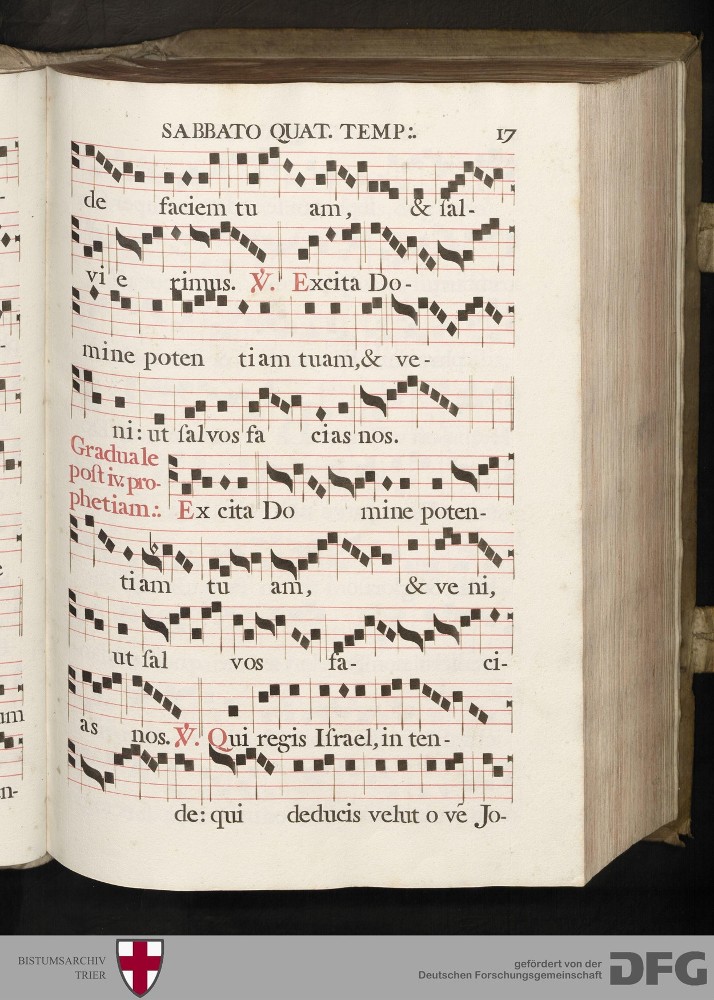 SABBATO QUAT. TEMP:. 17
de faciem tu am, & ſal-
vi e rimus. ℣. Excita Do-
mine poten tiam tuam,& ve-
ni: ut ſalvos fa cias nos.
Graduale
poſt iv. pro-
phetiam:.
Ex cita Do mine poten-
tiam tu am, & ve ni,
ut ſal vos fa- ci-
as nos. ℣. Qui regis Iſrael, in ten-
de: qui deducis velut o vẽ Jo-
um
n-
BISTUMSARCHIV
TRIER
gefördert von der
Deutschen Forschungsgemeinschaft
DFG